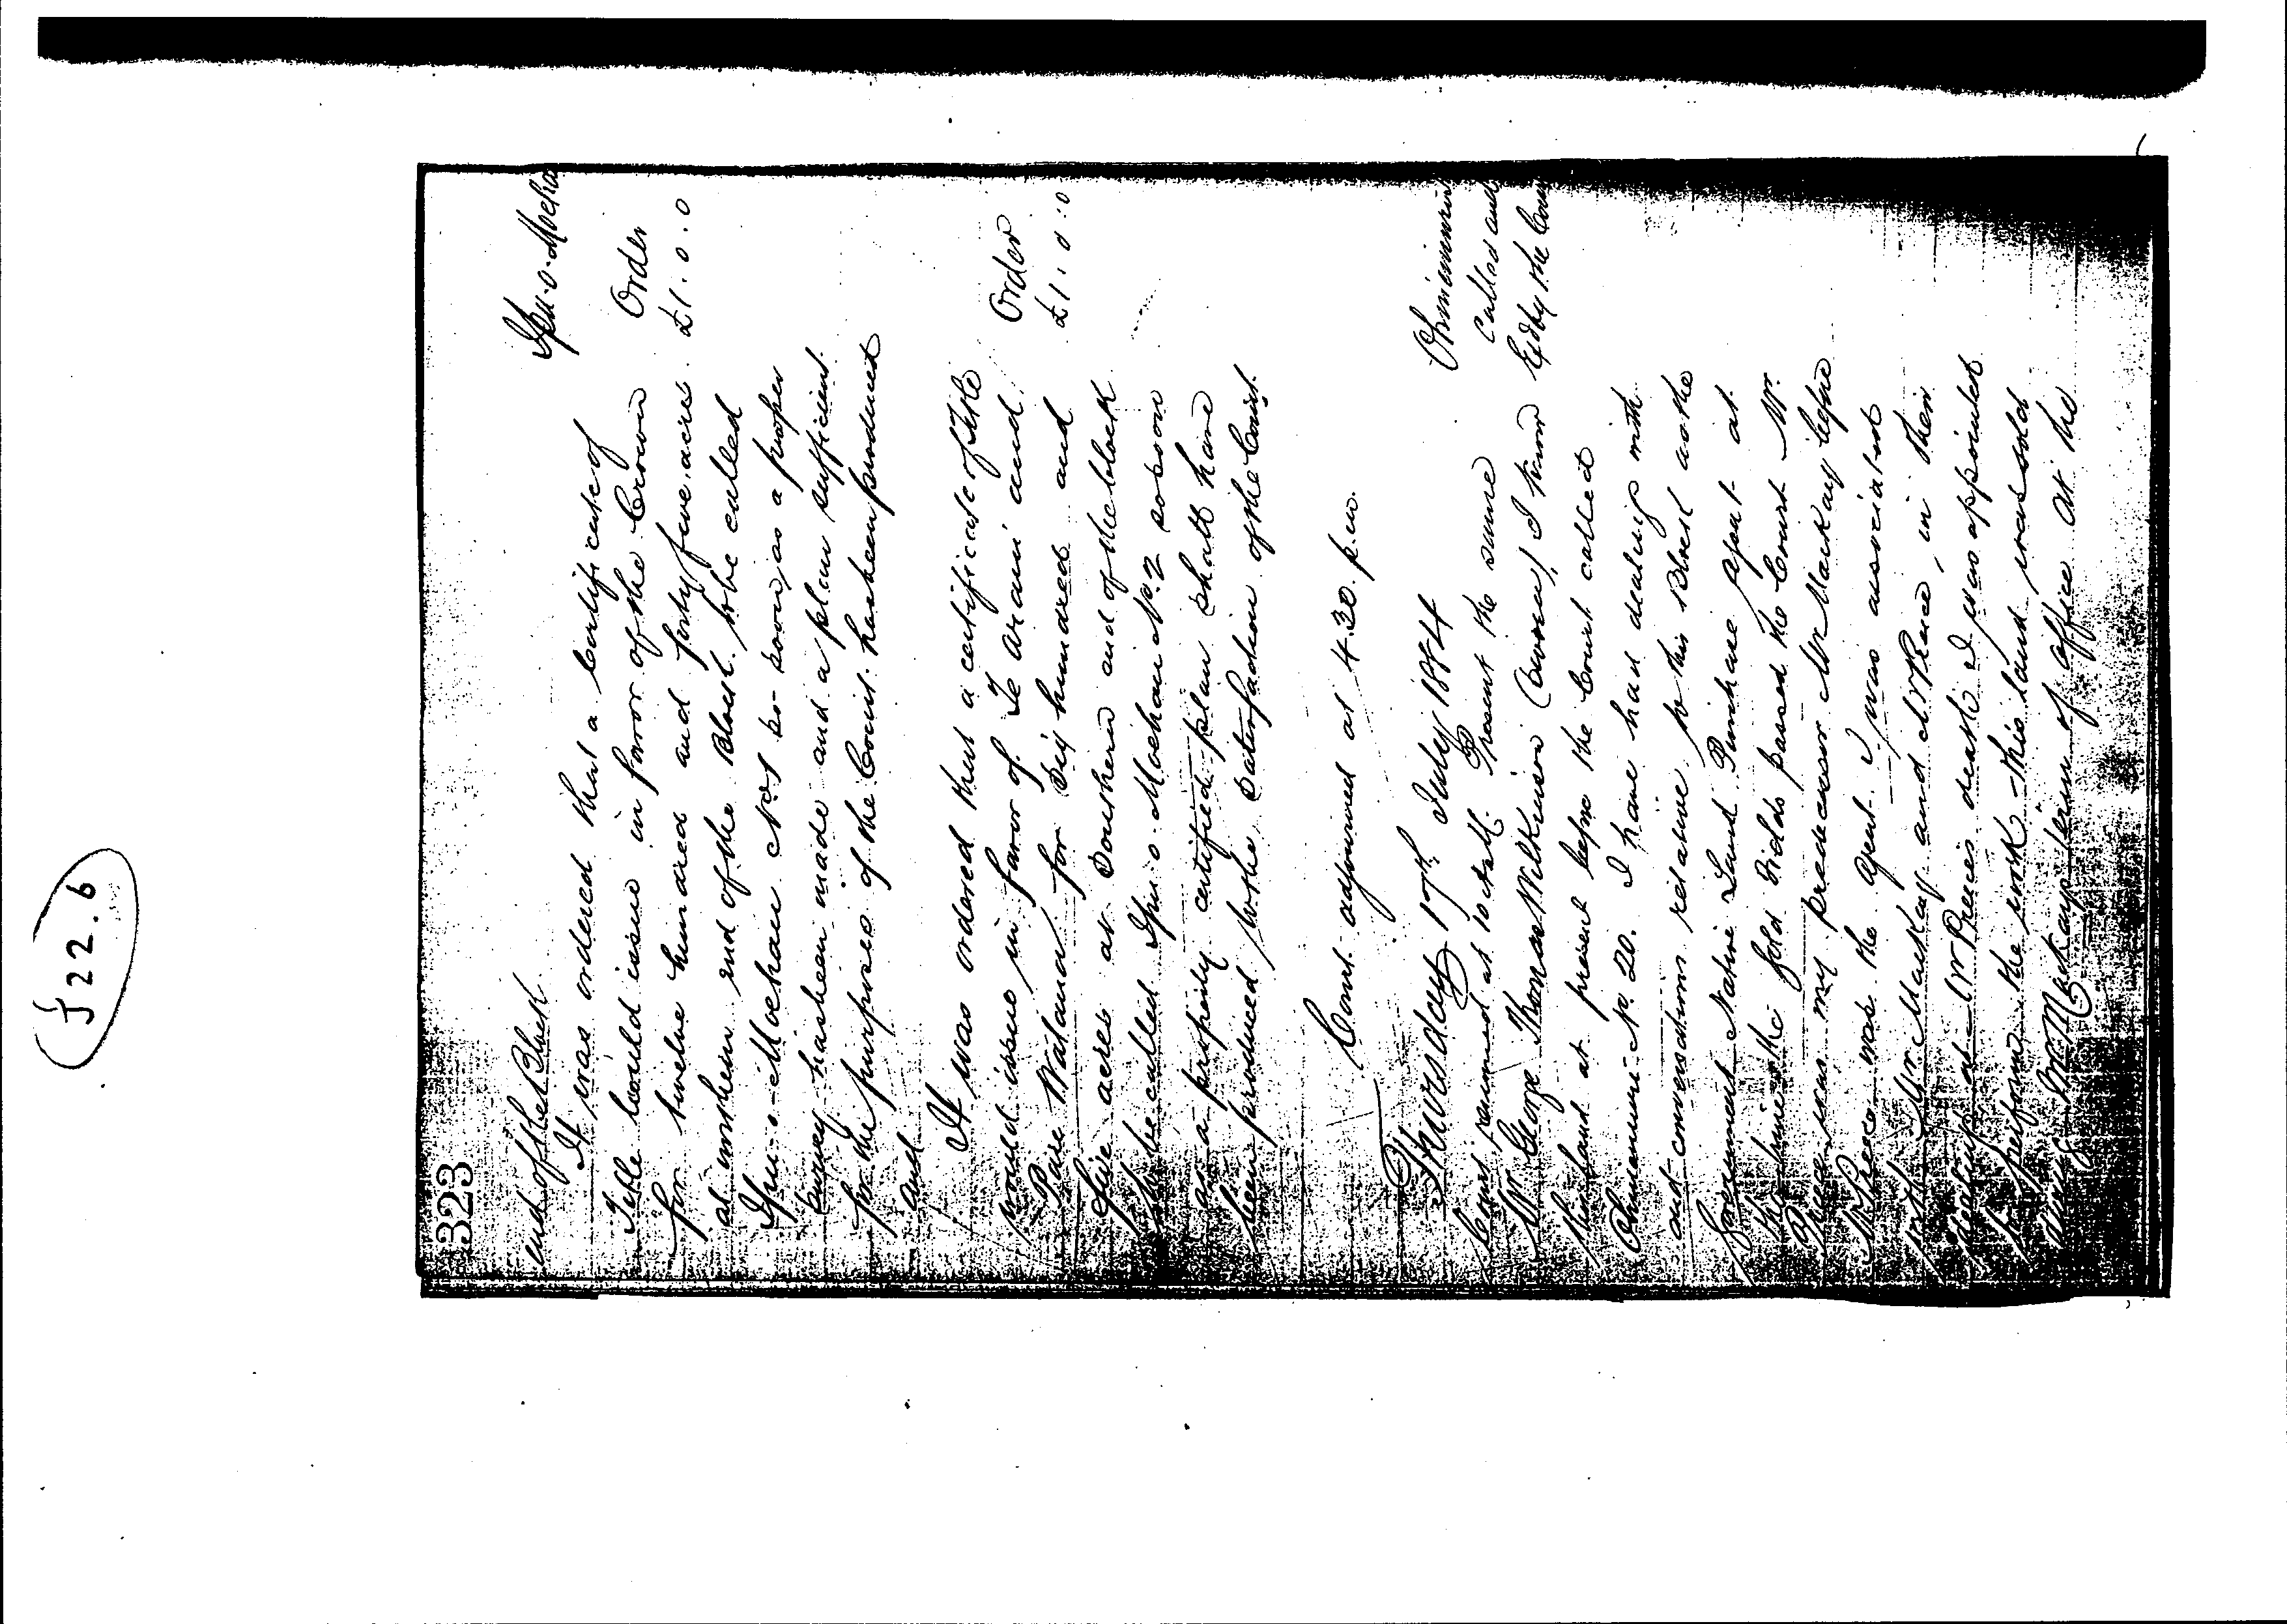 J22.6
323
Ipu-o-Moehau
end of the Block.
It was ordered that a Certificate of
Title would issue in favor of the Crown
Order
for twelve hundred and forty five acres
£1.0.0
at northern end of the Block to be called
Ipu-o-Moehau No 1 so soon as a proper
Survey has been made and a plan sufficient
for the purposes of the Court has been produced
and
It was ordered that a certificate of Title
would issue in favor of Te Arani and
Order
Pare Watana for Six hundred and
£1.0.0
five acres at Southern end of the block
to be called Ipu o Moehau No. 2 so soon
as a properly certified plan shall have
been produced to the Satisfaction of the Court.
Court adjourned at 4.30. p.m.
Thursday 17th July 1884
Court resumed at 10 o'clock. Present the same
Called and
Mr George Thomas Wilkinson (sworn) I know
Exd by the Court
the land at present before the Court called
Ohinemuri No. 20. I have had dealings with
and conversations relative to this Block as the
Government Native Land Purchase Agent at
the time the gold fields passed the Court Mr.
Preece was my predecessor Mr Mackay before
Mr Preece was the agent. I was associated
with Mr Mackay and Mr Preece, in their
dealings at Mr Preeces death I was appointed
to perform the work this land was sold
during Mr Mackays term of office at the